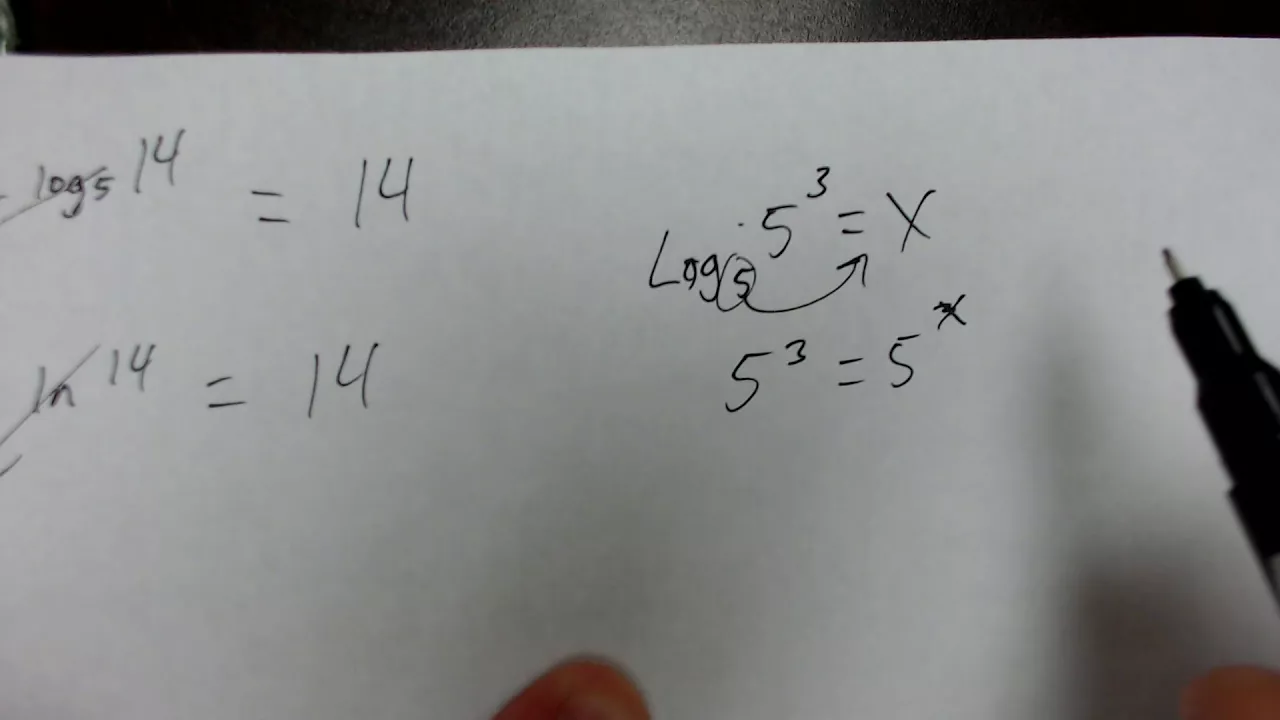 log₅ 14 = 14
ln 14 = 14
Log₅ 5³ = X
5³ = 5ˣ